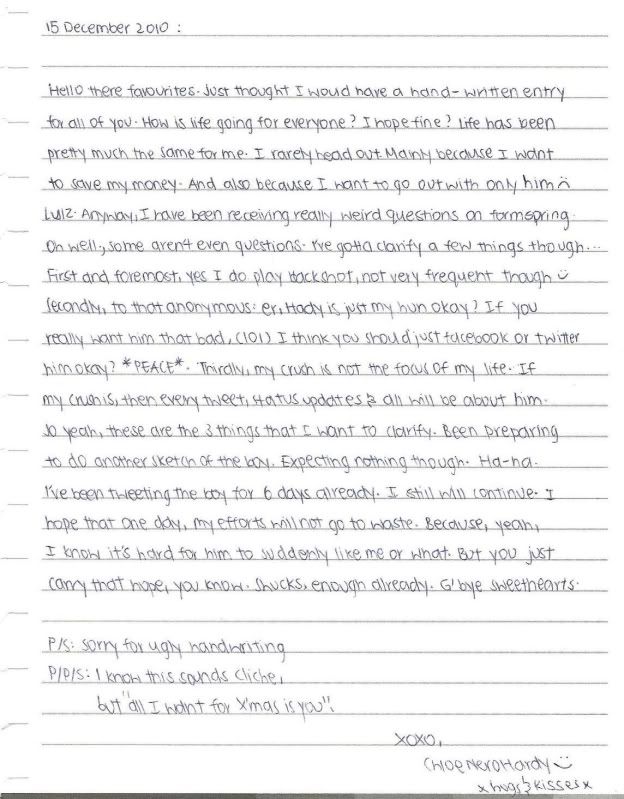 15 December 2010 :
Hello there favourites. Just thought I woud have a hand-written entry
for all of you. How is life going for everyone? I hope fine? Life has been
pretty much the same for me. I rarely head out. Mainly because I want
to save my money. And also because I want to go out with only him
Lulz. Anyway, I have been receiving really weird questions on formspring.
Oh well, some aren't even questions. I've gotta clarify a few things though...
First and foremost, yes I do play backshot, not very frequent though
Secondly, to that anonymous: er, Hady is just my hun okay? If you
really want him that bad, (101) I think you should just facebook or twitter
him okay? *PEACE*. Thirdly, my crush is not the focus of my life. If
my crush is, then every tweet, status updates & all will be about him.
So yeah, these are the 3 things that I want to clarify. Been preparing
to do another sketch of the boy. Expecting nothing though. Ha-ha.
I've been tweeting the boy for 6 days already. I still will continue. I
hope that one day, my efforts will not go to waste. Because, yeah,
I know it's hard for him to suddenly like me or what. But you just
carry that hope, you know. Shucks, enough already. G'bye sweethearts.
P/S: sorry for ugly handwriting
P/P/S: I know this sounds cliche,
but "all I want for X'mas is you".
XOXO,
ChloeNeroHardy
x hugs & kisses x